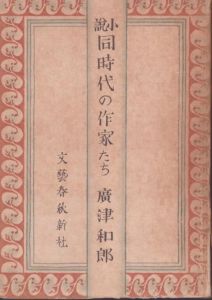 小説
同時代の作家たち 廣津和郎
文藝春秋新社